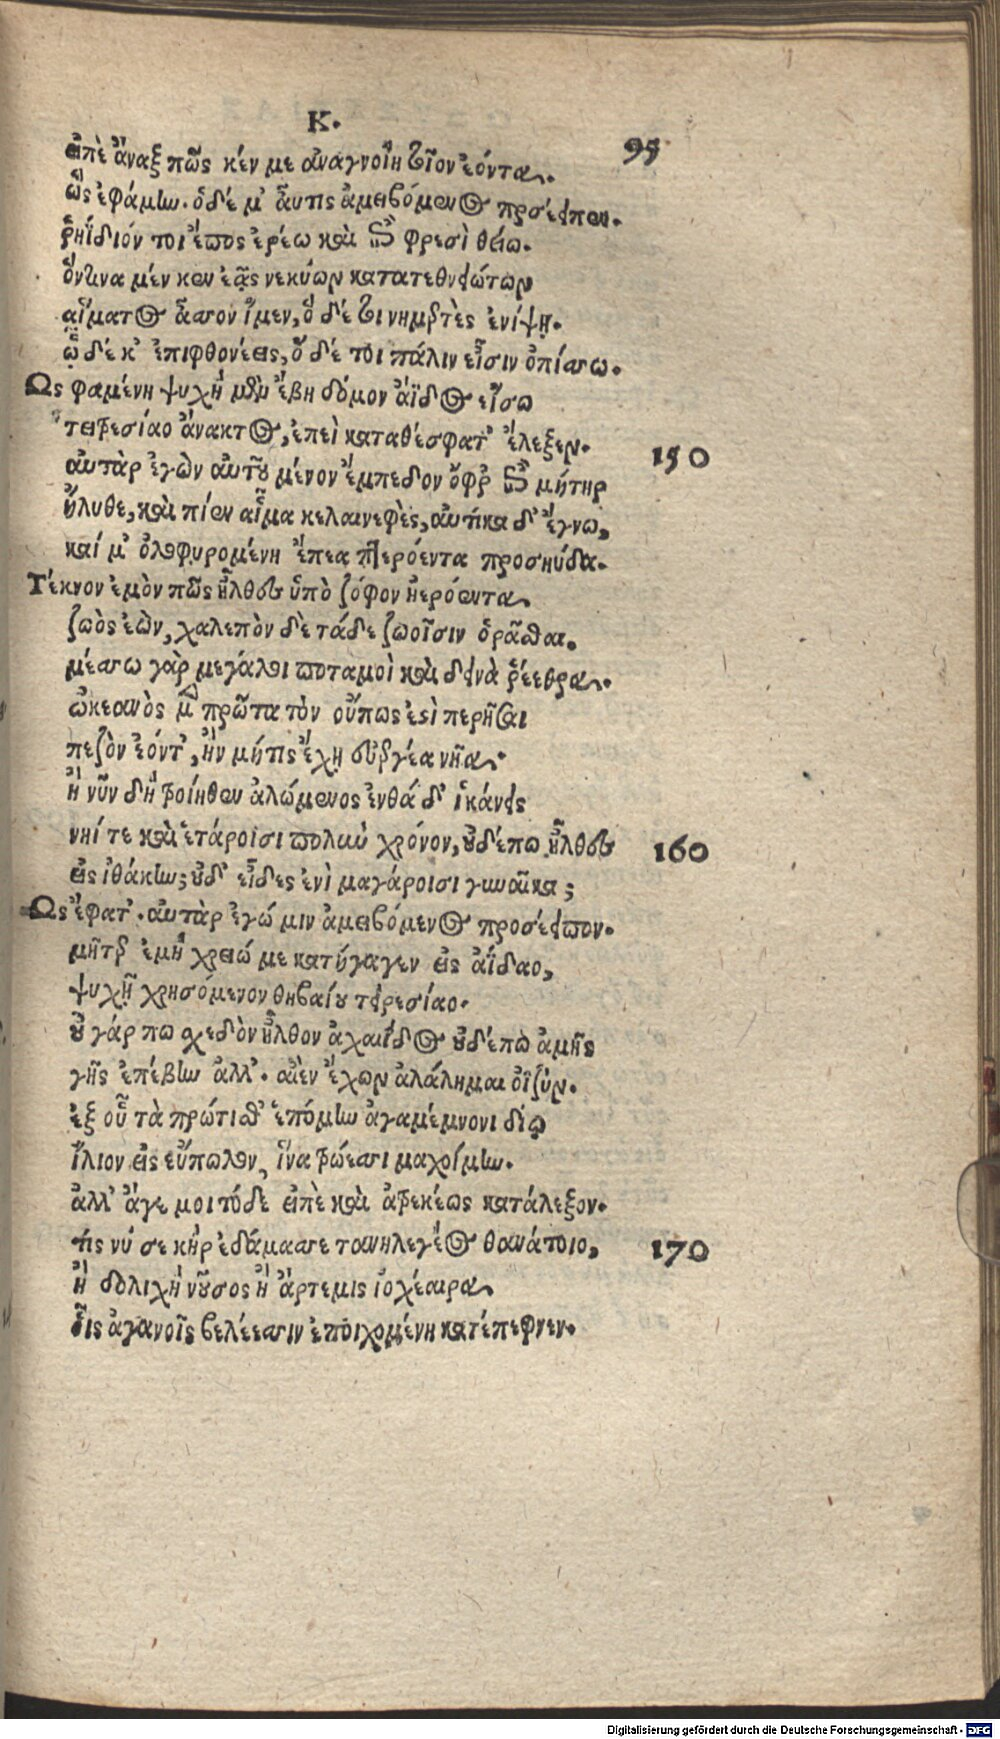 Κ.
95
εἰπὲ ἄναξ πῶς κέν με ἀναγνοίη τῖον ἐόντα.
ὣς ἐφάμην. ὁ δέ μ' αὖτις ἀμειβόμενος προσέειπεν.
ῥηΐδιόν τοι ἔπος ἐρέω καὶ ἐπὶ φρεσὶ θείω.
ὅντινα μέν κεν ἐᾷς νεκύων κατατεθνειώτων
αἵματος ἆσσον ἴμεν, ὁ δέ τι νημερτὲς ἐνίψῃ.
ᾧ δέ κ' ἐπιφθονέεις, ὁ δέ τοι πάλιν εἶσιν ὀπίσσω.
Ὣς φαμένη ψυχὴ μὲν ἔβη δόμον ἄϊδος εἴσω
τειρεσίαο ἄνακτος, ἐπεὶ καταθέσφατ' ἔλεξεν.
150
αὐτὰρ ἐγὼν αὐτοῦ μένον ἔμπεδον ὄφρ' ἐπὶ μήτηρ
ἤλυθε, καὶ πίεν αἷμα κελαινεφὲς, αὐτίκα δ' ἔγνω,
καί μ' ὀλοφυρομένη ἔπεα πτερόεντα προσηύδα.
Τέκνον ἐμὸν πῶς ἦλθες ὑπὸ ζόφον ἠερόεντα
ζωὸς ἐὼν, χαλεπὸν δὲ τάδε ζωοῖσιν ὁρᾶσθαι.
μέσσω γὰρ μεγάλοι ποταμοὶ καὶ δεινὰ ῥέεθρα.
ὠκεανὸς μὲν πρῶτα τὸν οὔπως ἐστὶ περῆσαι
πεζὸν ἐόντ', ἢν μήτις ἔχῃ εὐεργέα νῆα.
ἢ νῦν δὴ τροίηθεν ἀλώμενος ἐνθάδ' ἱκάνεις
νηί τε καὶ ἑτάροισι πολὺν χρόνον, οὐδέπω ἦλθες
160
εἰς ἰθάκην; οὐδ' εἶδες ἐνὶ μαγάροισι γυναῖκα;
Ὣς ἔφατ'. αὐτὰρ ἐγώ μιν ἀμειβόμενος προσέειπον.
μῆτερ ἐμὴ χρειώ με κατήγαγεν εἰς ἀΐδαο,
ψυχῇ χρησόμενον θηβαίου τειρεσίαο.
οὐ γάρ πω σχεδὸν ἦλθον ἀχαιΐδος οὐδέπω ἀμῆς
γῆς ἐπέβην ἀλλ'. αἰὲν ἔχων ἀλάλημαι ὀϊζύν.
ἐξ οὗ τὰ πρώτισθ' ἑπόμην ἀγαμέμνονι δίῳ
ἴλιον εἰς εὔπωλον, ἵνα τρώεσσι μαχοίμην.
ἀλλ' ἄγε μοι τόδε εἰπὲ καὶ ἀτρεκέως κατάλεξον.
τίς νύ σε κὴρ ἐδάμασσε τανηλεγέος θανάτοιο,
170
ἢ δολιχὴ νοῦσος ἢ ἄρτεμις ἰοχέαιρα
οἷς ἀγανοῖς βελέεσσιν ἐποιχομένη κατέπεφνεν.
Digitalisierung gefördert durch die Deutsche Forschungsgemeinschaft · DFG